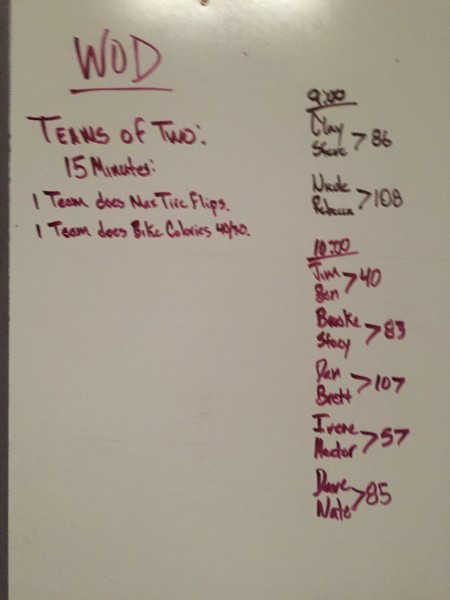 WOD
Teams of Two:
15 Minutes:
1 Team does Max Tire Flips.
1 Team does Bike Calories 40/30.
9:00
Clay
Steve > 86
Nicole
Rebecca > 108
10:00
Jim
Ben > 40
Brooke
Stacy > 83
Dan
Brett > 107
Irene
Hector > 57
Dave
Nate > 85